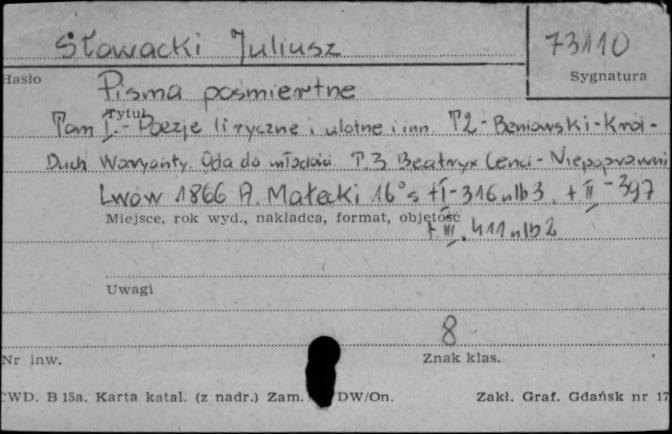 Słowacki Juliusz 73110
Hasło Sygnatura
Pisma pośmiertne
Tytuł
Tom I. - Poezje liryczne i ulotne i inn. T2 - Beniowski - Król -
Duch Waryanty. Oda do młodości. T.3 Beatryx Cenci - Niepoprawni
Lwów 1866 A. Małecki 16° s tI - 316 nlb 3. + II - 397
Miejsce, rok wyd., nakładca, format, objętość
t III. 411 nlb 2
Uwagi
8
Nr inw. Znak klas.
CWD. B 15a. Karta katal. (z nadr.) Zam. DW/On. Zakł. Graf. Gdańsk nr 17